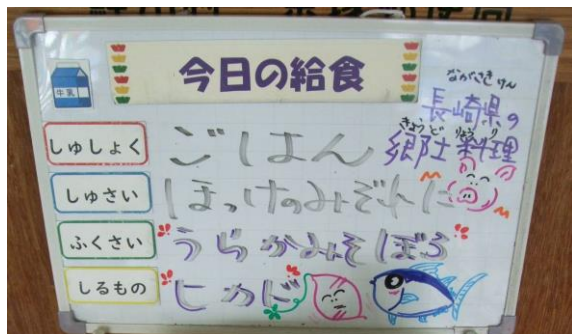 今日の給食
牛乳
ながさきけん
長崎県の
きょうどりょうり
郷土料理
しゅしょく ごはん
しゅさい ほっけのみぞれに
ふくさい うらかみそぼろ
しるもの ヒカド